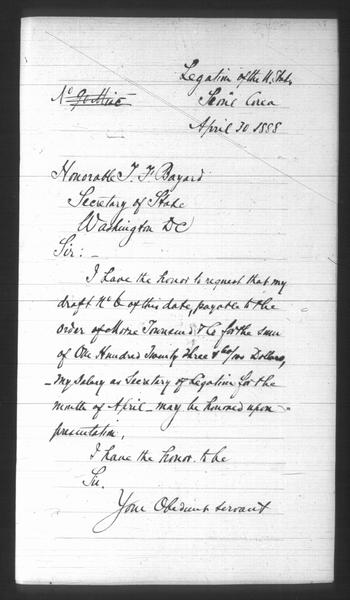 Legation of the U. States
No
Seoul Corea
April 30 1888
Honorable T. F. Bayard
Secretary of State
Washington DC
Sir: -
I have the honor to request that my
draft No 6 of this date, payable to the
order of Morse Townsend & Co for the sum
of One Hundred Twenty Three & 60/100 Dollars,
- My Salary as Secretary of Legation for the
month of April - may be honored upon
presentation.
I have the honor to be
Sir.
Your Obedient servant